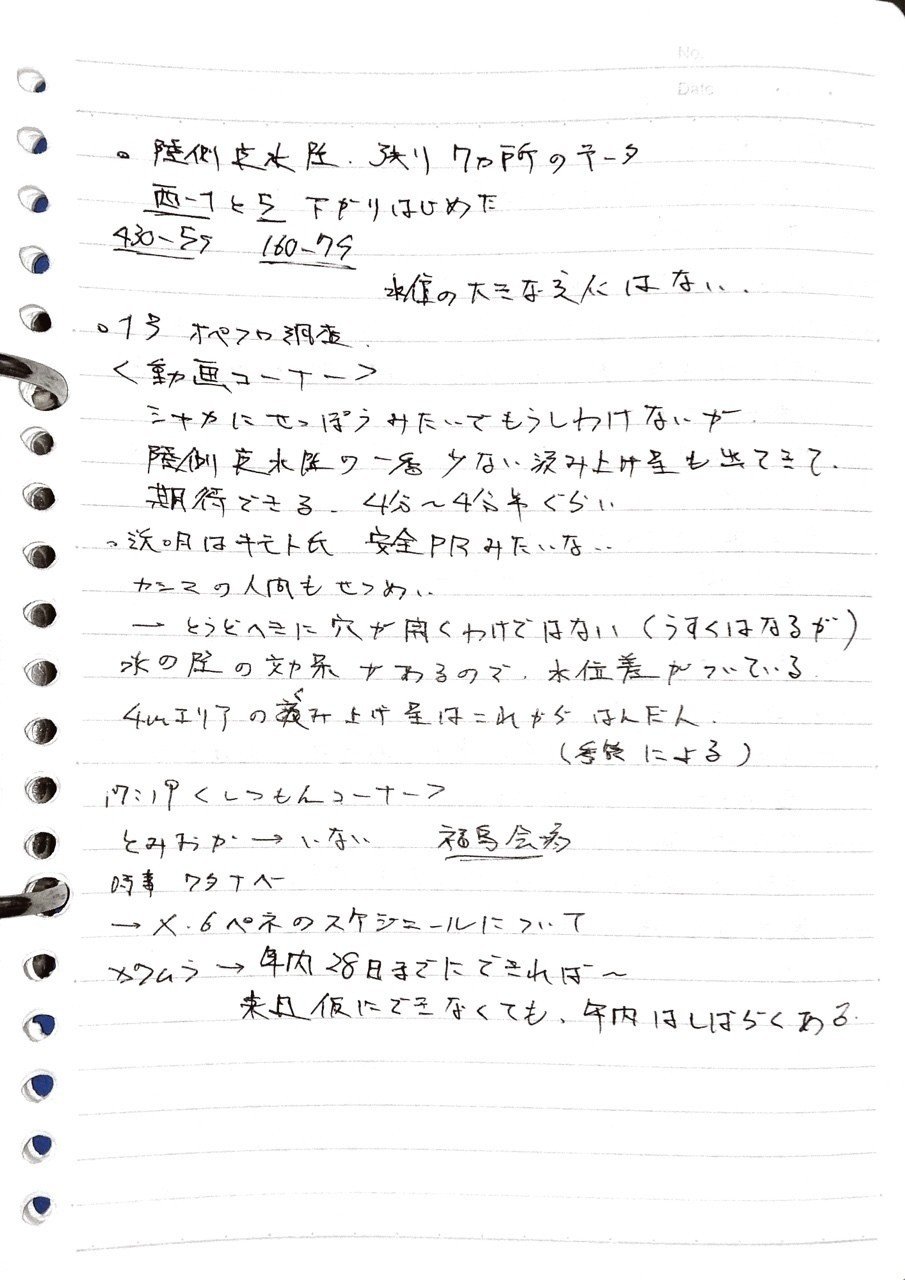 No.
Date
。陸側遮水壁、残り7カ所のデータ
西-1と5 下がりはじめた
430-5S 160-7S
水位の大きな変化はない、
。1号 オペフロ調査、
<動画コーナー>
シャカにせっぽうみたいでもうしわけないが、
陸側遮水壁の一番少ない汲み上げ量も出てきて、
期待できる、4分〜4分半ぐらい
。説明はキモト氏 安全PRみたいな..
カシマの人間もせつめい
→ とうどへきに穴が開くわけではない(うすくはなるが)
氷の壁の効果があるので、水位差がついている
4mエリアのくみ上げ量はこれから はんだん、
(季節による)
17:19 <しつもんコーナー>
とみおか→いない 福島会場
時事 ワタナベー
→ X.6ペネのスケジュールについて
→ 年内28日までにできれば〜
来月仮にできなくても、年内はしばらくある